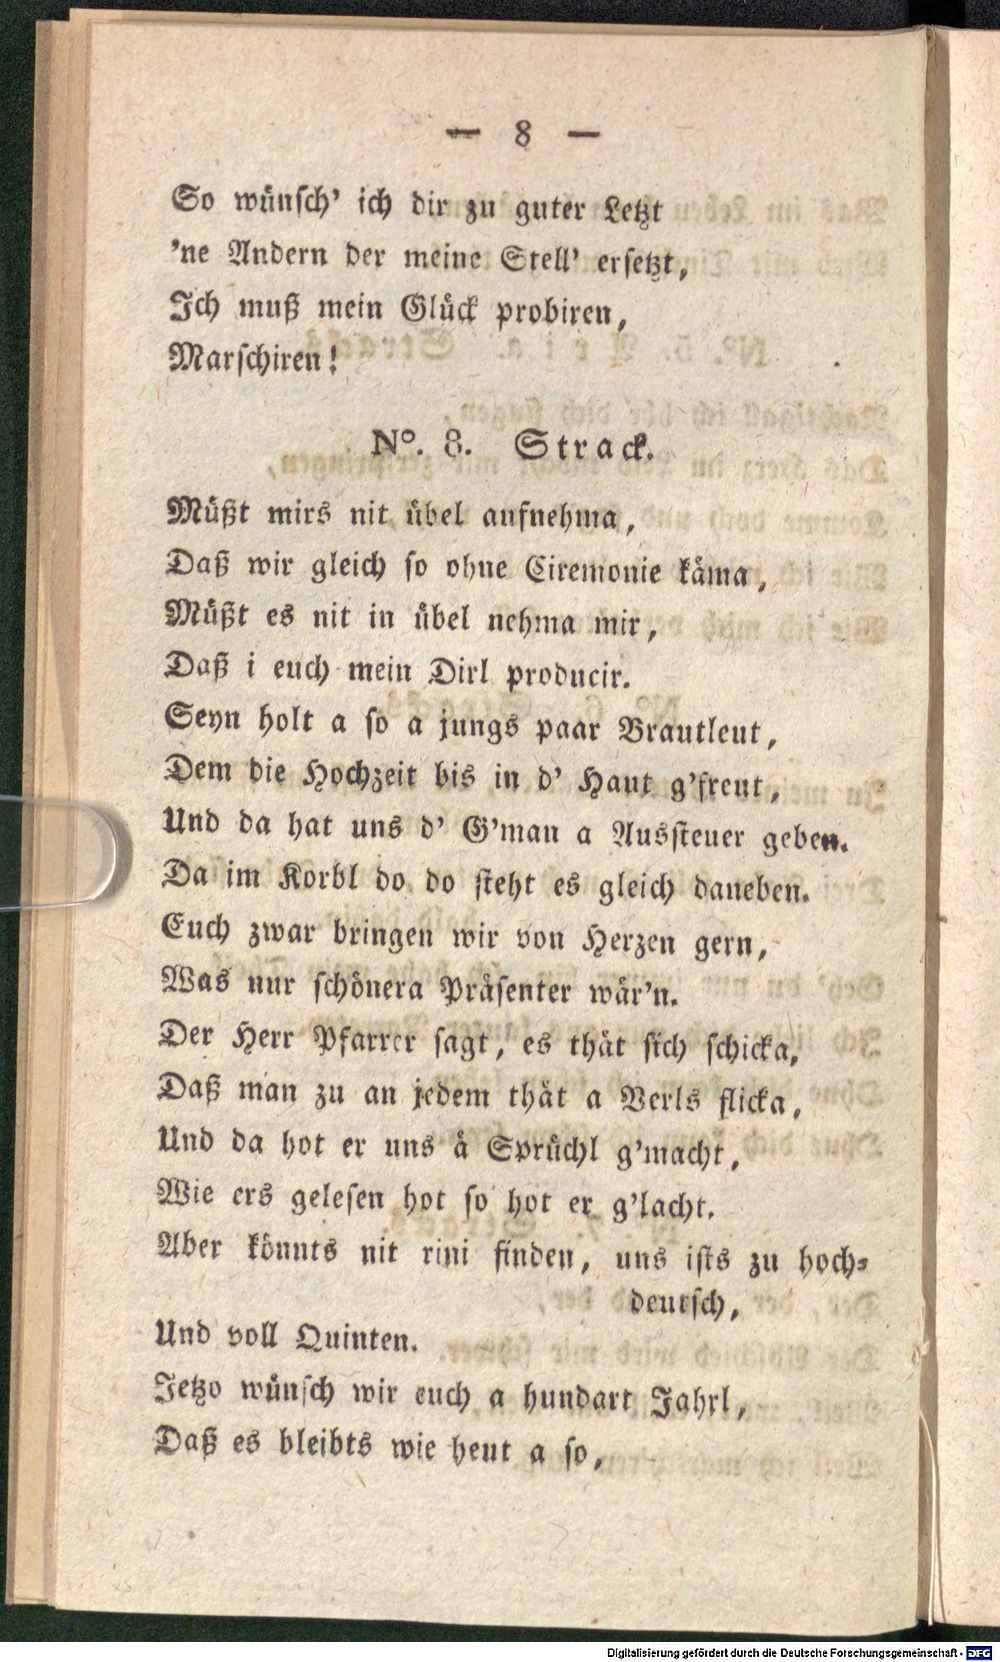 — 8 —
So wünsch' ich dir zu guter Letzt
'ne Andern der meine Stell' ersetzt,
Ich muß mein Glück probiren,
Marschiren!
No. 8. Strack.
Müßt mirs nit übel aufnehma,
Daß wir gleich so ohne Ciremonie käma,
Müßt es nit in übel nehma mir,
Daß i euch mein Dirl producir.
Seyn holt a so a jungs paar Brautleut,
Dem die Hochzeit bis in d' Haut g'freut,
Und da hat uns d' G'man a Aussteuer geben.
Da im Korbl do do steht es gleich daneben.
Euch zwar bringen wir von Herzen gern,
Was nur schönera Präsenter wär'n.
Der Herr Pfarrer sagt, es thät sich schicka,
Daß man zu an jedem thät a Verls flicka,
Und da hot er uns å Sprüchl g'macht,
Wie ers gelesen hot so hot er g'lacht.
Aber könnts nit rini finden, uns ists zu hoch-
deutsch,
Und voll Quinten.
Jetzo wünsch wir euch a hundart Jahrl,
Daß es bleibts wie heut a so,
Digitalisierung gefördert durch die Deutsche Forschungsgemeinschaft - DFG